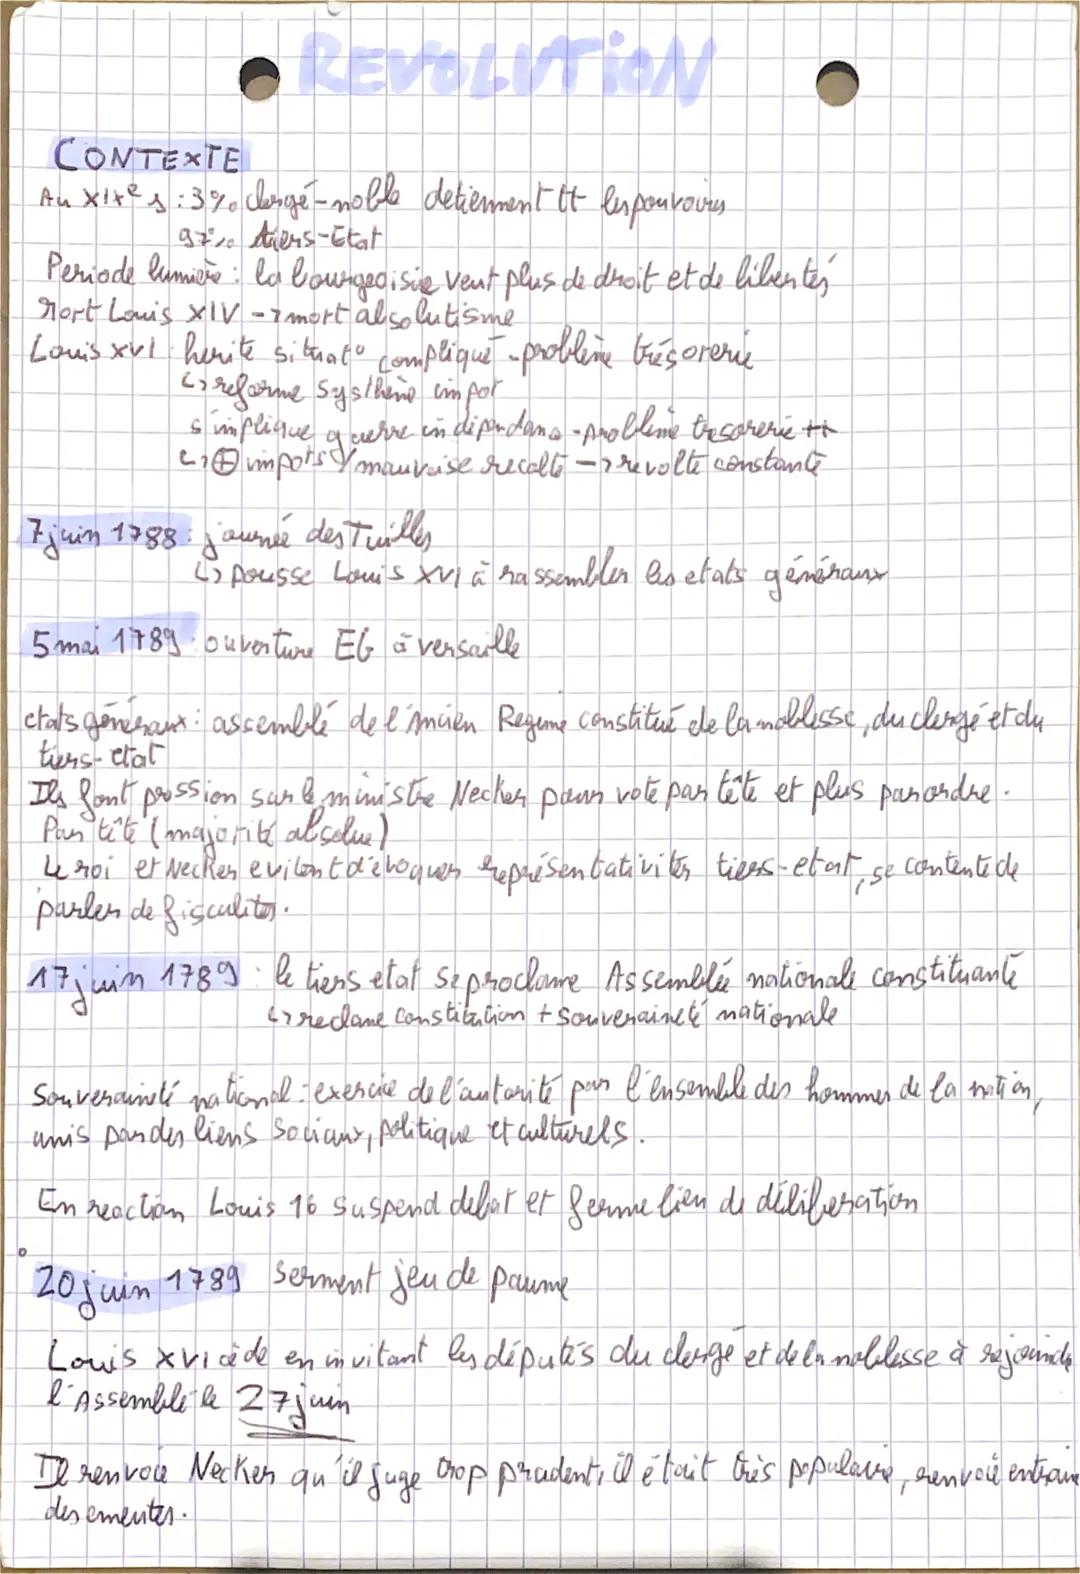 REVOLUTION
CONTEXTE
Au XIXe s : 3% clergé-noble detiennent tt les pouvoirs
97% tiers-Etat
Periode lumière : la bourgeoisie veut plus de droit et de libertés
Mort Louis XIV -> mort absolutisme
Louis XVI herite situat° compliqué - problème trésorerie
↳ reforme système impot
s'implique guerre indépendance - problème tresorerie ++
↳ ⊕ impots / mauvaise recolte -> revolte constante
7 juin 1788 : journée des Tuilles
↳ pousse Louis XVI à rassembler les etats généraux
5 mai 1789 : ouverture EG à versaille
etats généraux : assemblé de l'Ancien Regime constitué de la noblesse, du clergé et du
tiers-etat
Ils font pression sur le ministre Necker pour vote par tête et plus par ordre.
Par tête (majorité absolue)
Le roi et Necker evitent d'évoquer représentativités tiers-etat, se contente de
parler de fiscalités.
17 juin 1789 : le tiers etat se proclame Assemblée nationale constituante
↳ reclame constitution + souveraineté nationale
Souveraineté national : exercice de l'autorité par l'ensemble des hommes de la nation,
unis par des liens sociaux, politique et culturels.
En reaction Louis 16 suspend debat et ferme lieu de déliberation
20 juin 1789 serment jeu de paume
Louis XVI cède en invitant les députés du clergé et de la noblesse à rejoindre
l'Assemblé le 27 juin
Il renvoie Necker qu'il juge trop prudent, il était très populaire, renvoie entraine
des emeutes.